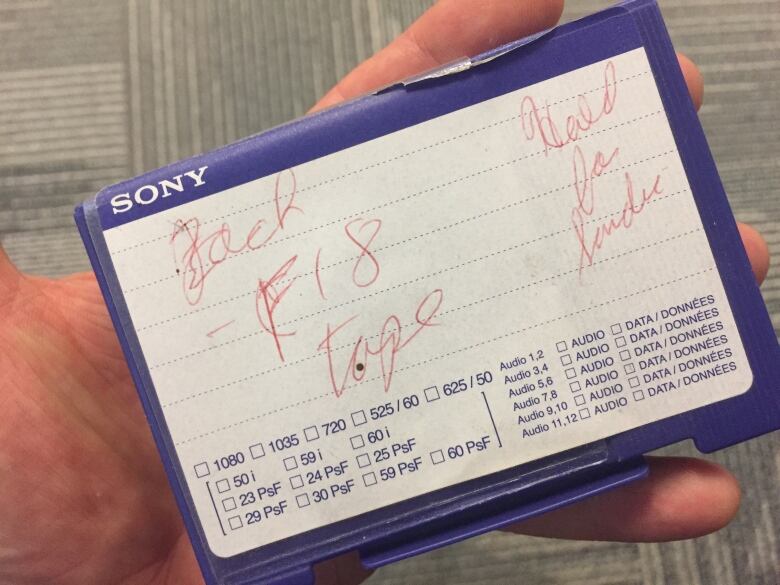 SONY
Zach
- F18
tape
Hold
for
Sunday
☐ 1080 ☐ 1035 ☐ 720 ☐ 525 / 60 ☐ 625 / 50
☐ 50 i ☐ 59 i ☐ 60 i
☐ 23 PsF ☐ 24 PsF ☐ 25 PsF
☐ 29 PsF ☐ 30 PsF ☐ 59 PsF ☐ 60 PsF
Audio 1,2 ☐ AUDIO ☐ DATA / DONNÉES
Audio 3,4 ☐ AUDIO ☐ DATA / DONNÉES
Audio 5,6 ☐ AUDIO ☐ DATA / DONNÉES
Audio 7,8 ☐ AUDIO ☐ DATA / DONNÉES
Audio 9,10 ☐ AUDIO ☐ DATA / DONNÉES
Audio 11,12 ☐ AUDIO ☐ DATA / DONNÉES